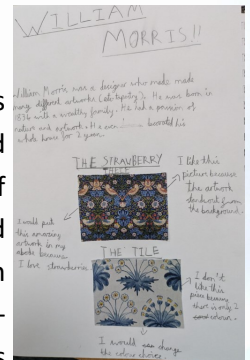 WILLIAM
MORRIS!!
William Morris was a designer who made
many different artworks (at tapestry). He was born in
1836 with a wealthy family. He had a passion of
nature and artwork. He even his
whole house for 2 years.
THE STRAWBERRY
THIEF
I like this
picture because
the artwork
from
the background.
I would put
this amazing
artwork in my
abode because
I love strawberries
THE TILE
I don't
like this
piece because
there is only 1
colour.
I would change
the colour choice.